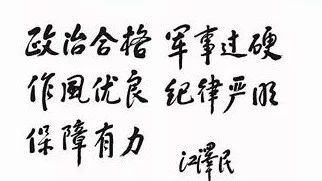 政治合格 军事过硬
作风优良 纪律严明
保障有力
江泽民